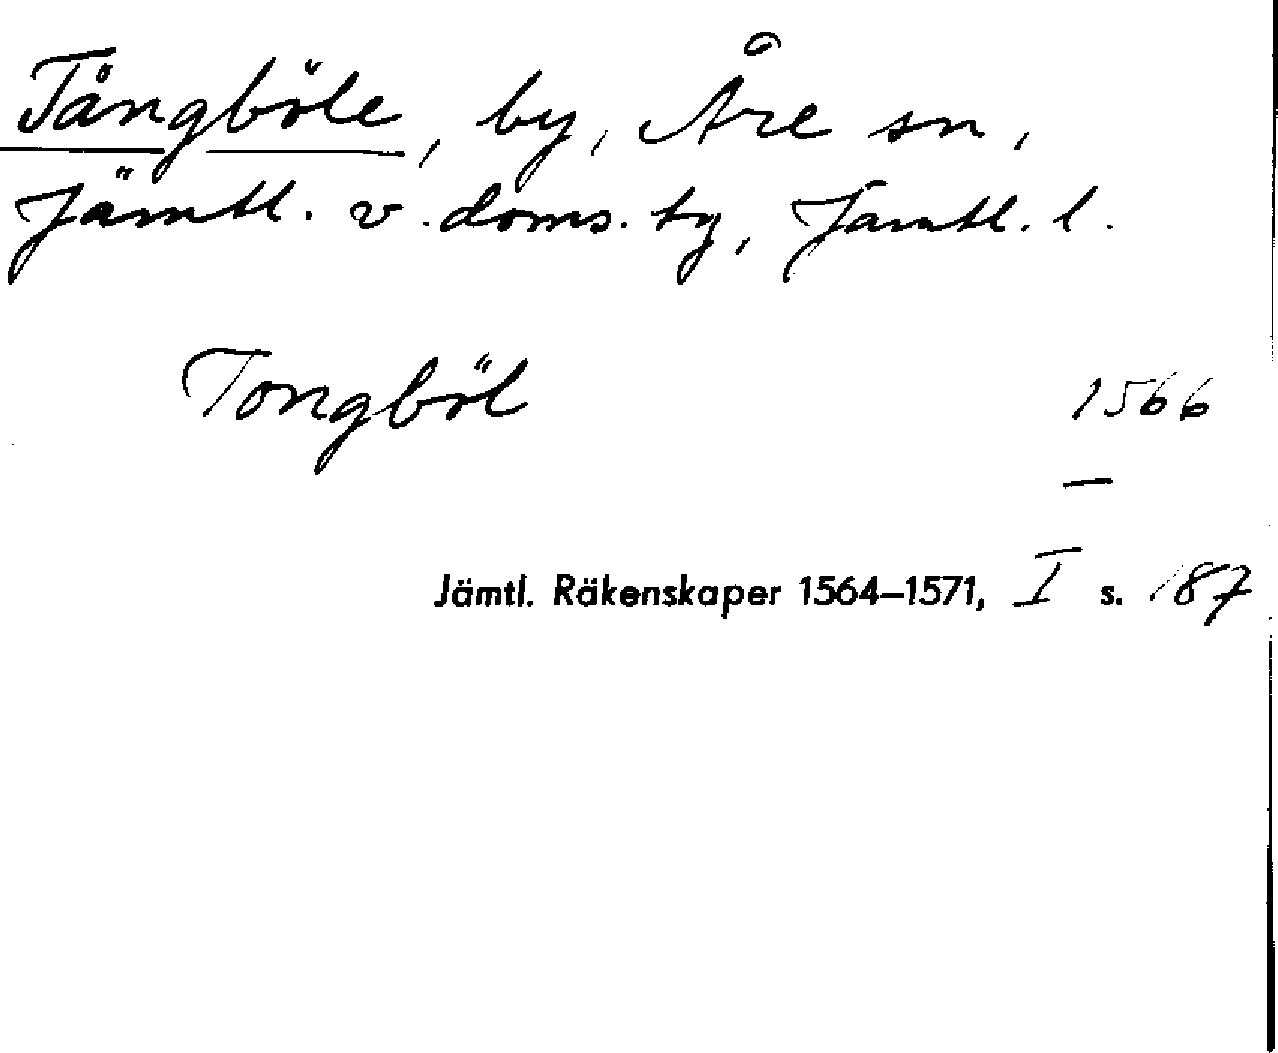 Tångböle, by, Åre sn,
Jämtl. v. doms. hg, Jämtl. l.
Tongböl 1566
—
Jämtl. Räkenskaper 1564–1571, I s. 187